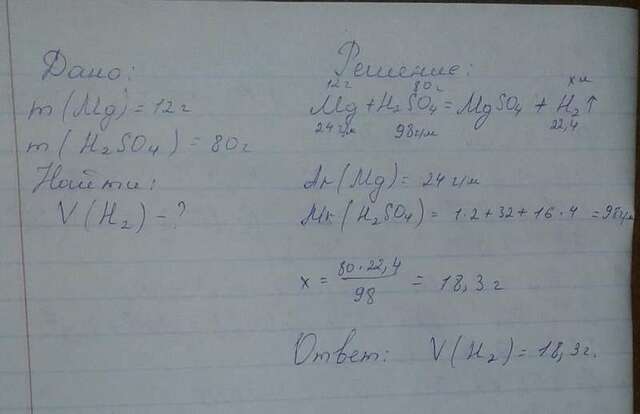 Дано:
m(Mg)=12г
m(H₂SO₄)=80г
Найти:
V(H₂)-?
Решение:
12г 80г x л
Mg+H₂SO₄=MgSO₄+H₂↑
24г/м 98г/м 22,4
Ar(Mg)=24г/м
Mr(H₂SO₄)=1·2+32+16·4=98г/м
x=80·22,4/98=18,3г
Ответ: V(H₂)=18,3г.